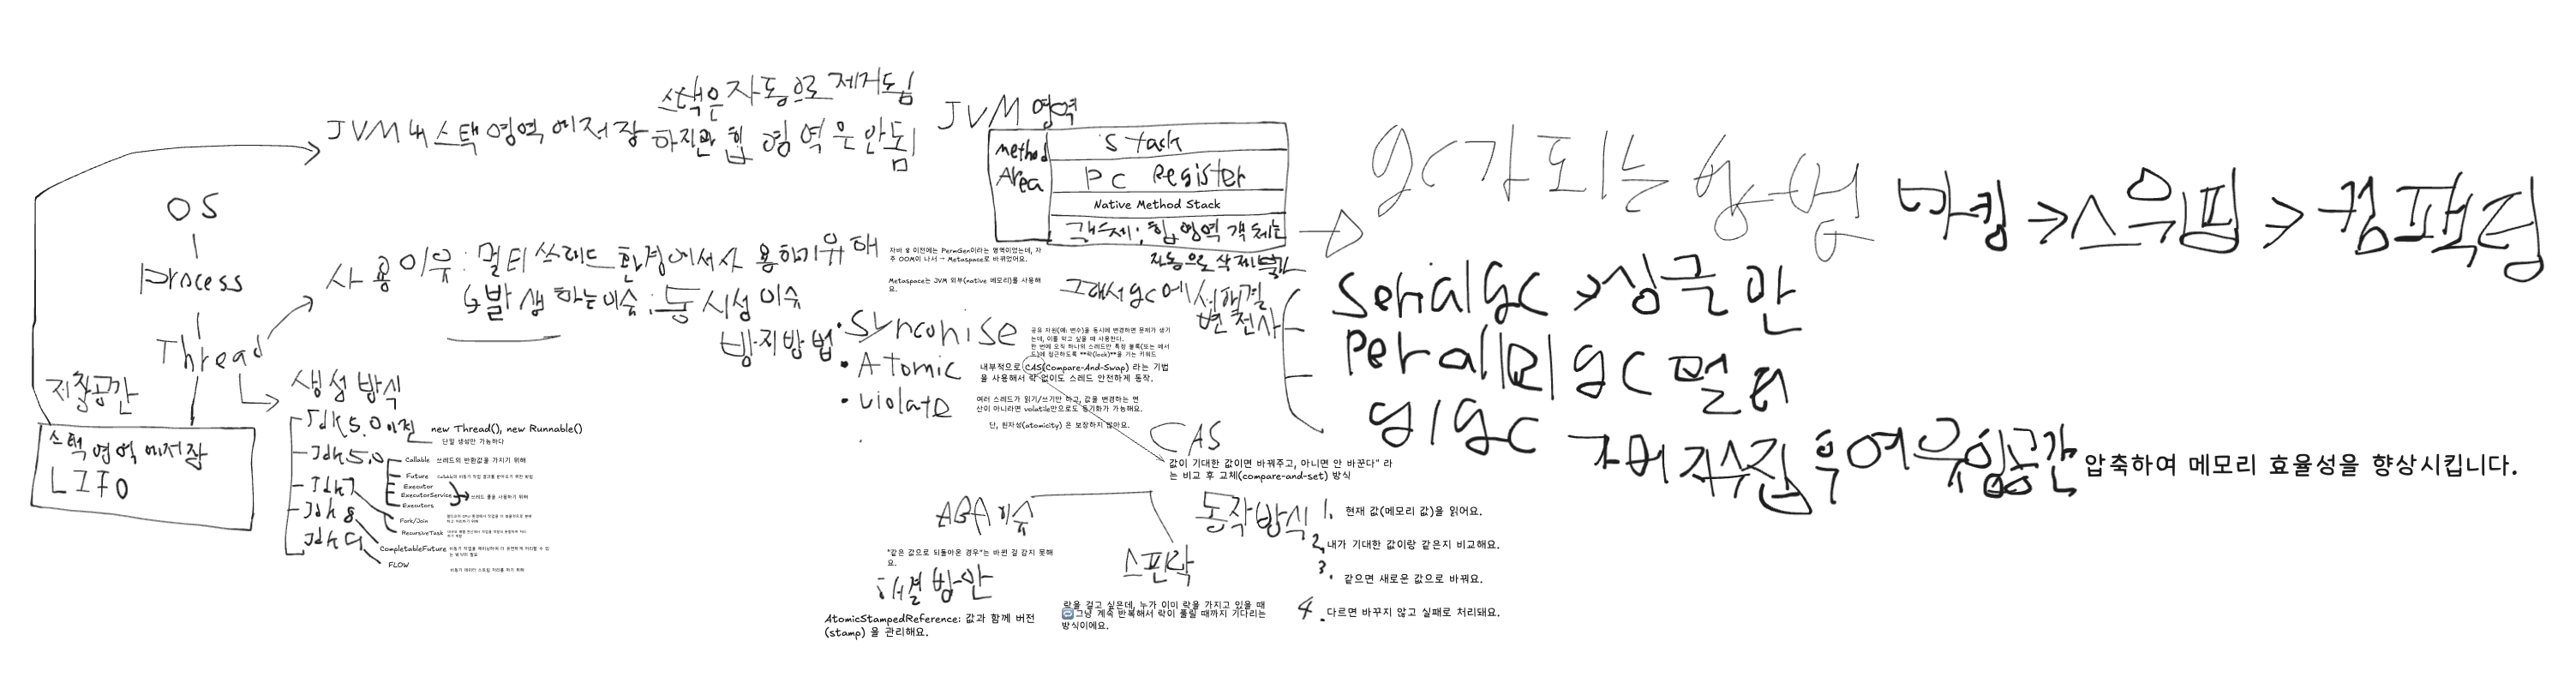 스택은 자동으로 제거됨
JVM 내 스택 영역에 저장 하지만 힙 영역은 안됨
OS
Process
Thread
저장공간
스택 영역에 저장
LIFO
사용이유: 멀티 쓰레드 환경에서 사용하기 위해
↳ 발생하는 이슈: 동시성 이슈
방지방법
생성 방식
Jdk 5.0 이전
new Thread(), new Runnable()
단일 생성만 가능하다
Jdk 5.0
Callable 쓰레드의 반환값을 가지기 위해
Future
Executor
ExecutorService
쓰레드 풀을 사용하기 위해
Executors
Jdk 7
Fork/Join
RecursiveTask
Jdk 8
CompletableFuture
Jdk 9
FLOW
비동기 데이터 스트림 처리를 하기 위해
JVM 영역
Method Area
Stack
PC Register
Native Method Stack
힙 영역 객체는
자동으로 삭제 불가
자바 8 이전에는 PermGen이라는 영역이었는데, 자
주 OOM이 나서 → Metaspace로 바뀌었어요.
Metaspace는 JVM 외부(native 메모리)를 사용해
요.
• Synconise
공유 자원(예: 변수)을 동시에 변경하면 문제가 생기
는데, 이를 막고 싶을 때 사용한다.
한 번에 오직 하나의 스레드만 특정 블록(또는 메서
드)에 접근하도록 **락(lock)**을 거는 키워드
• Atomic
내부적으로 CAS(Compare-And-Swap) 라는 기법
을 사용해서 락 없이도 스레드 안전하게 동작.
• violate
여러 스레드가 읽기/쓰기만 하고, 값을 변경하는 연
산이 아니라면 volatile만으로도 동기화가 가능해요.
단, 원자성(atomicity) 은 보장하지 않아요.
CAS
값이 기대한 값이면 바꿔주고, 아니면 안 바꾼다" 라
는 비교 후 교체(compare-and-set) 방식
ABA 이슈
"같은 값으로 되돌아온 경우"는 바뀐 걸 감지 못해
요.
해결 방안
AtomicStampedReference: 값과 함께 버전
(stamp) 을 관리해요.
스핀락
락을 걸고 싶은데, 누가 이미 락을 가지고 있을 때
그냥 계속 반복해서 락이 풀릴 때까지 기다리는
방식이에요.
동작방식
1. 현재 값(메모리 값)을 읽어요.
2. 내가 기대한 값이랑 같은지 비교해요.
3. 같으면 새로운 값으로 바꿔요.
4. 다르면 바꾸지 않고 실패로 처리돼요.
gc가 도는 방법 마킹 → 스위핑 → 컴팩팅
그래서 gc에
변천사
Serial gc → 싱글만
gc 멀티
g1gc
압축하여 메모리 효율성을 향상시킵니다.